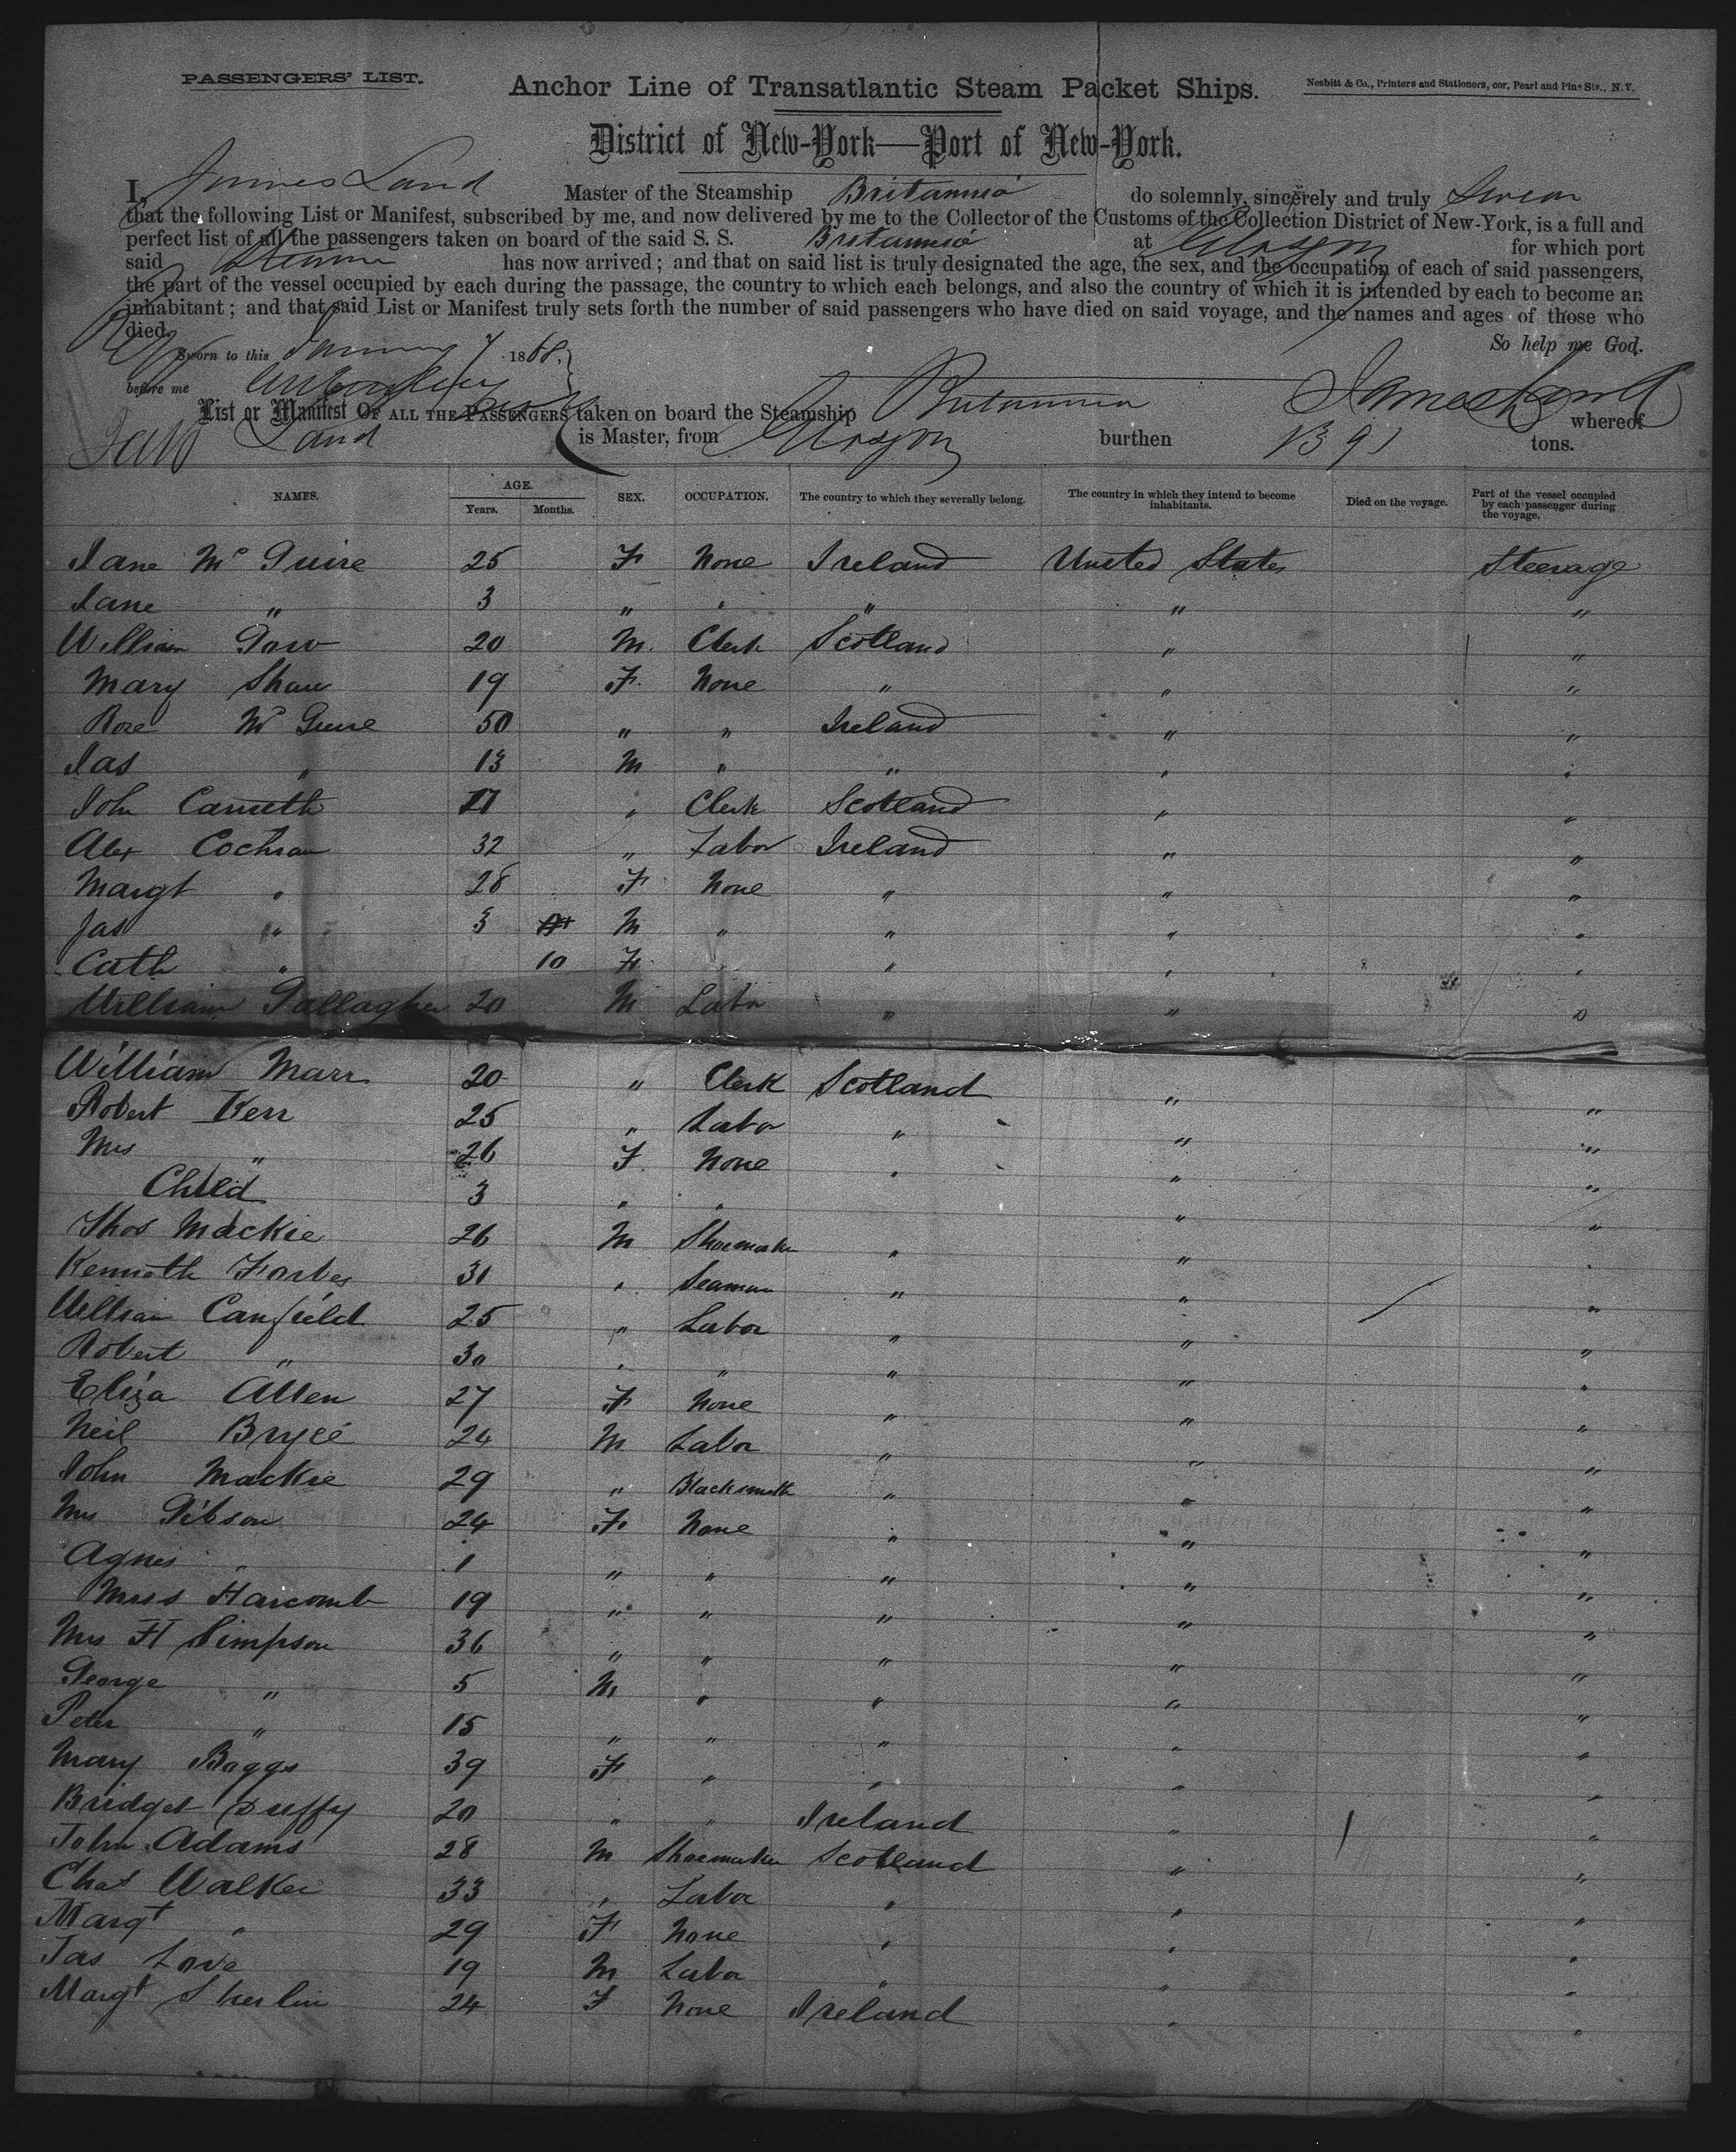 PASSENGERS' LIST.
Anchor Line of Transatlantic Steam Packet Ships.
Nesbitt & Co., Printers and Stationers, cor. Pearl and Pine Sts., N. Y.
District of New-York—Port of New-York.
I, James Land Master of the Steamship Britannia do solemnly, sincerely and truly Swear
that the following List or Manifest, subscribed by me, and now delivered by me to the Collector of the Customs of the Collection District of New-York, is a full and
perfect list of all the passengers taken on board of the said S. S. Britannia at Glasgow for which port
said Steamer has now arrived; and that on said list is truly designated the age, the sex, and the occupation of each of said passengers,
the part of the vessel occupied by each during the passage, the country to which each belongs, and also the country of which it is intended by each to become an
inhabitant; and that said List or Manifest truly sets forth the number of said passengers who have died on said voyage, and the names and ages of those who
died. So help me God.
Sworn to this January 7 1868.
before me James Land
List or Manifest OF ALL THE PASSENGERS taken on board the Steamship Britannia whereof
Jas Land is Master, from Glasgow burthen 1391 tons.
NAMES. AGE. SEX. OCCUPATION. The country to which they severally belong. The country in which they intend to become inhabitants. Died on the voyage. Part of the vessel occupied by each passenger during the voyage.
Years. Months.
Jane Mc Guire 25 F None Ireland United States Steerage
Jane " 3 " " " " "
William Gow 20 M. Clerk Scotland " "
Mary Shaw 19 F. None " " "
Rose Mc Guire 50 " " Ireland " "
Jas " 13 M " " " "
John Carruth 17 " Clerk Scotland " "
Alex Cochran 32 " Labor Ireland " "
Margt " 28 F None " " "
Jas " 3 M " " " "
Cath " 10 F. " " "
William Gallagher 20 M Labor " " "
William Marr 20 " Clerk Scotland " "
Robert Kerr 25 " Labor " " "
Mrs " 26 F. None " " "
Child 3 " " " "
Thos Mackie 26 M Shoemaker " " "
Kenneth Forbes 31 " Seaman " " "
William Canfield 25 " Labor " " "
Robert " 30 " " " " "
Eliza Allen 27 F None " " "
Neil Bryce 24 M Labor " " "
John Mackie 29 " Blacksmith " " "
Mrs Gibson 24 F. None " " "
Agnes " 1 " " " " "
Miss Harcomb 19 " " " " "
Mrs H Simpson 36 " " " " "
George " 5 M " " " "
Peter " 15 " " " " "
Mary Boggs 39 F " " " "
Bridget Duffy 20 " " Ireland " "
John Adams 28 M Shoemaker Scotland " "
Chas Walker 33 " Labor " " "
Margt " 29 F None " " "
Jas Love 19 M Labor " " "
Margt Sherlin 24 F None Ireland " "